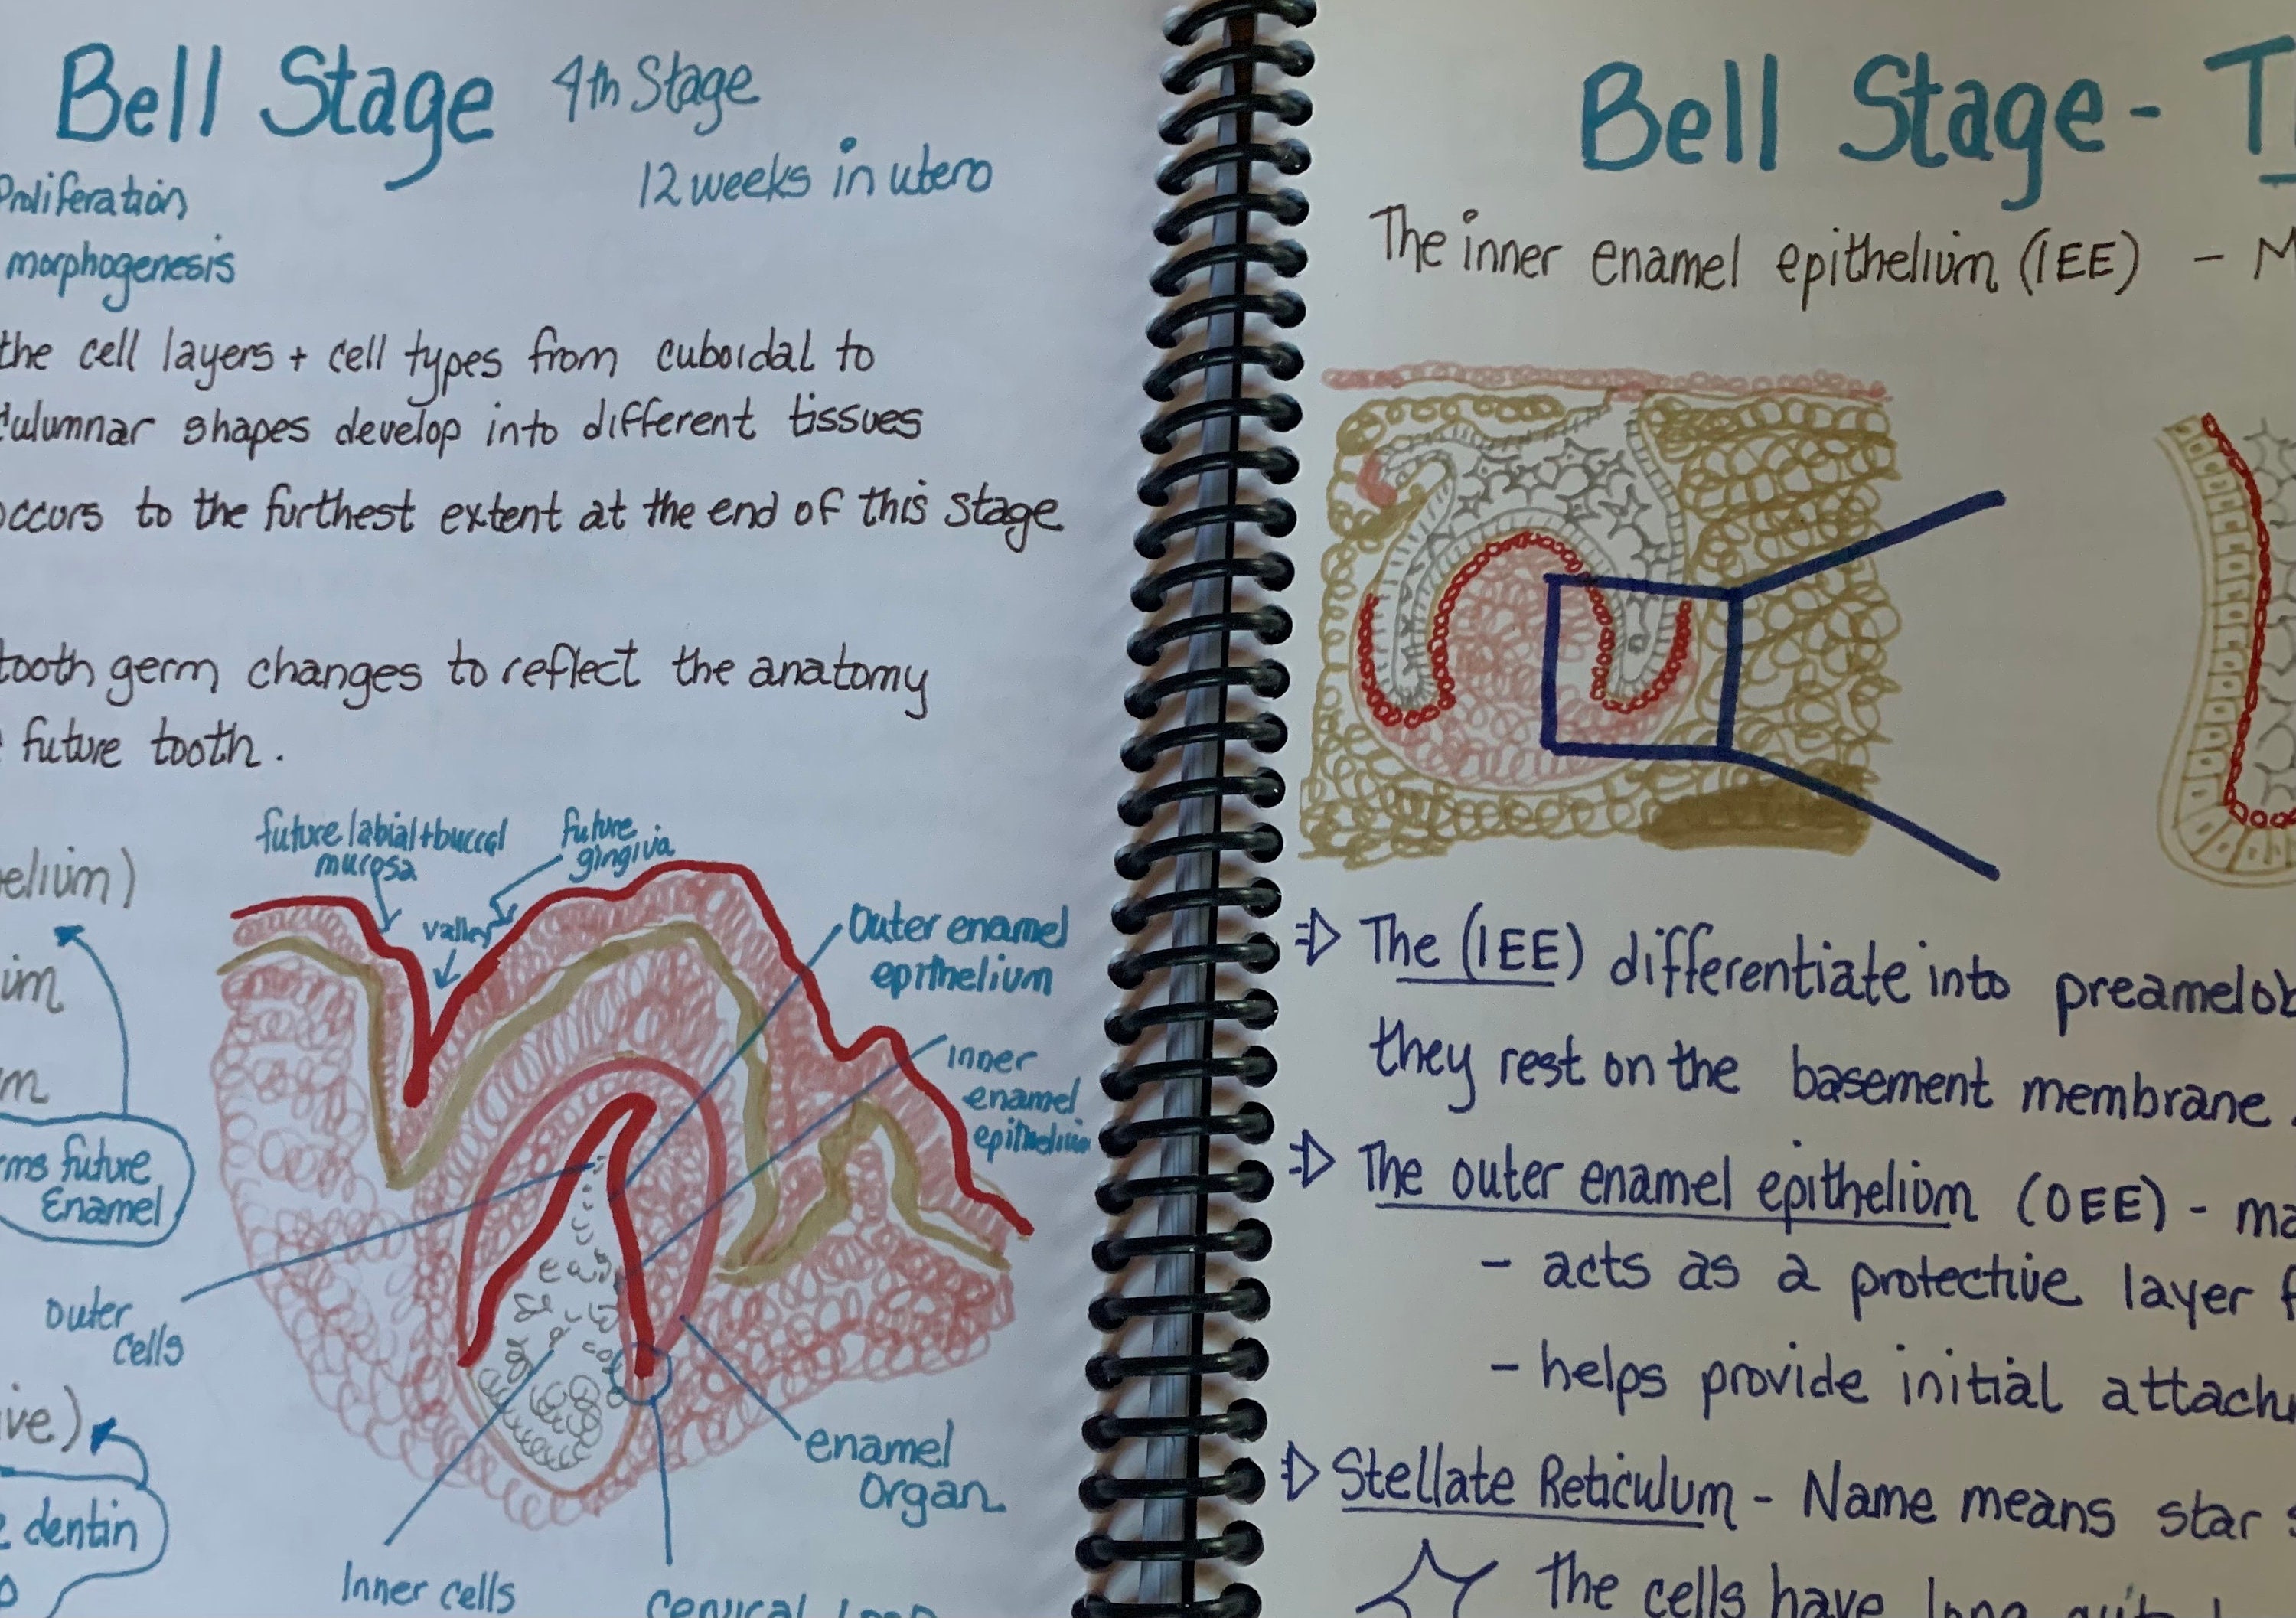 Bell Stage 4th Stage
12 weeks in utero
Proliferation
morphogenesis
the cell layers + cell types from cuboidal to
culumnar shapes develop into different tissues
occurs to the furthest extent at the end of this stage
tooth germ changes to reflect the anatomy
future tooth.
future labial + buccal
mucosa
future
gingiva
valley
elium)
im
m
ms future
Enamel
Outer enamel
epithelium
inner
enamel
epithelium
outer
cells
enamel
Organ
ive)
dentin
Inner cells
Cervical Loop
Bell Stage - T
The inner enamel epithelium (IEE) - M
The (IEE) differentiate into preamelob
they rest on the basement membrane
The outer enamel epithelium (OEE) - ma
- acts as a protective layer f
- helps provide initial attach
Stellate Reticulum - Name means star s
The cells have long